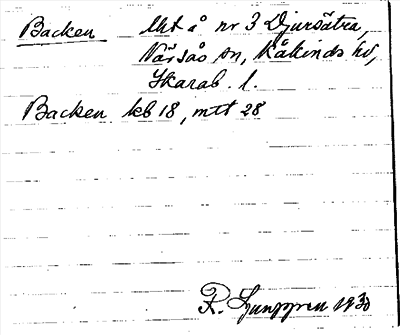 Backen lht å nr 3 Djursätra,
Värsås sn, Kåkinds hd,
Skarab. l.
Backen kb 18, mtt 28
R. Ljunggren 1930